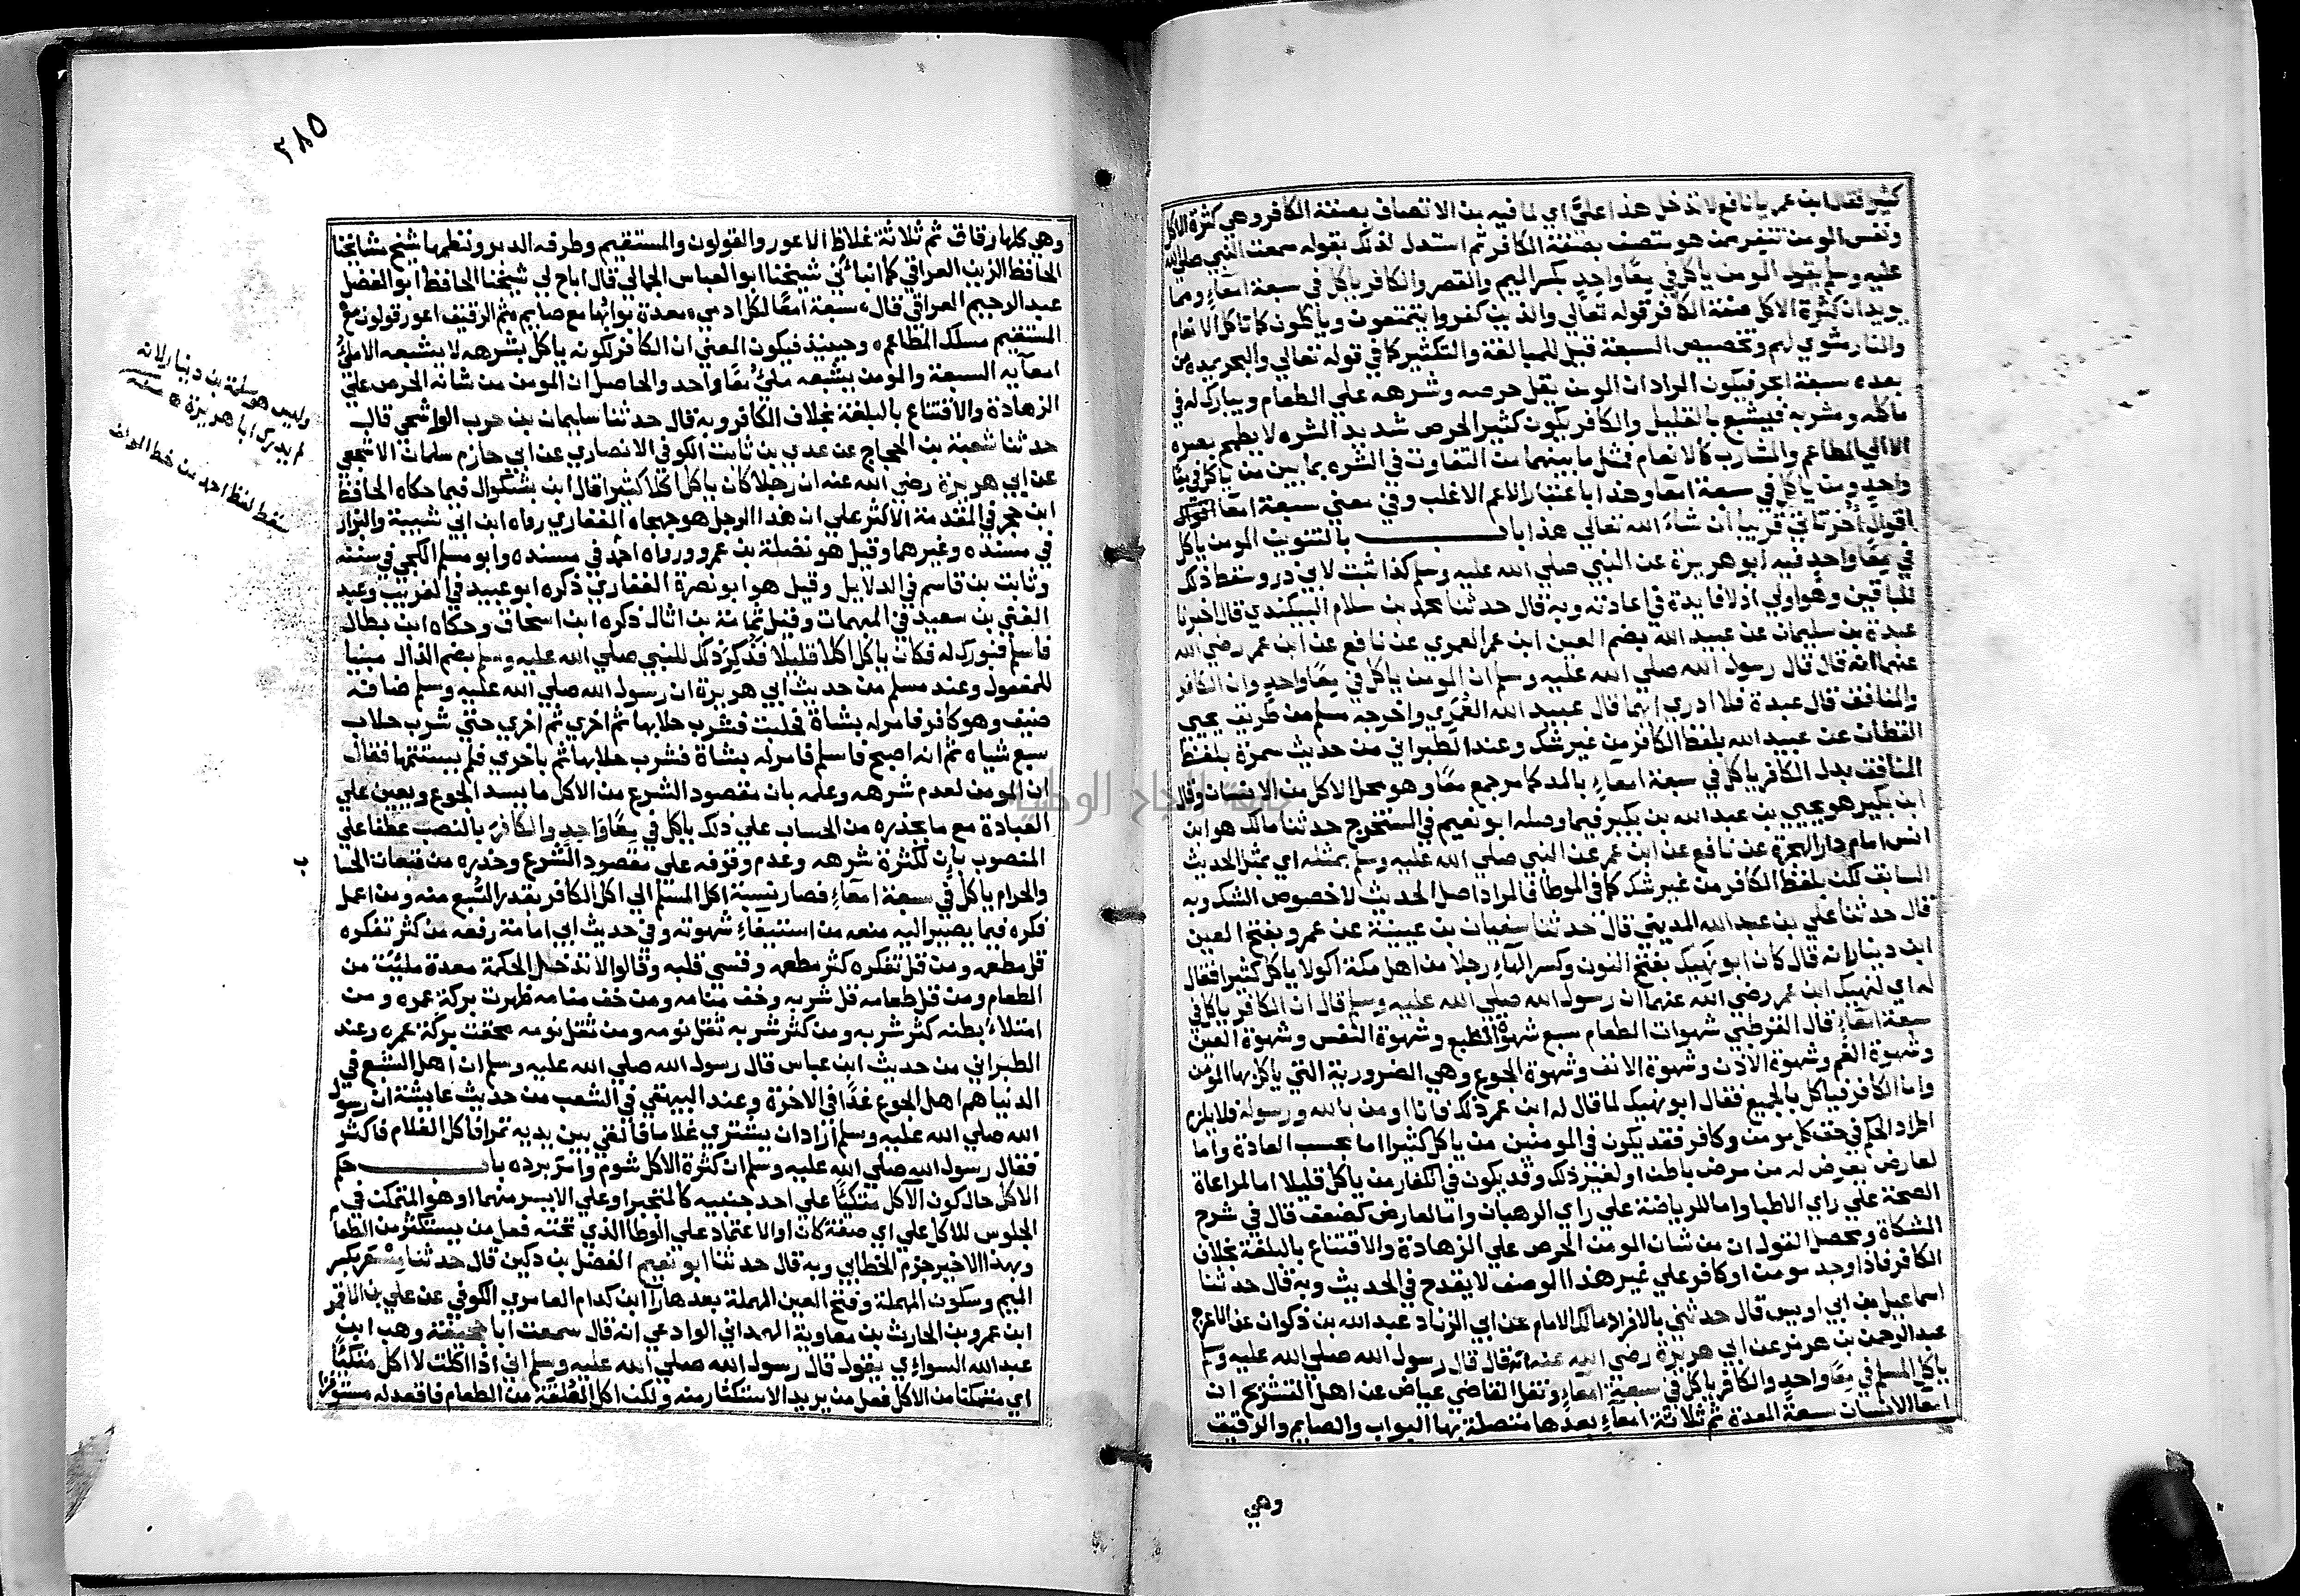 كثيرا فقال ابن عمر يا نافع لا تدخل هذا عليّ اي لما فيه من الاتصاف بصفة الكافر وهي كثرة الاكل
ونفس المومن تنفر ممن هو متصف بصفة الكافر ثم استدل لذلك بقوله سمعت النبي صلى الله
عليه وسلم يقول المومن ياكل في معًا واحدٍ بكسر الميم والقصر والكافر ياكل في سبعة امعاءٍ ومما
يويد ان كثرة الاكل صفة الكافر قوله تعالي والذين كفروا يتمتعون وياكلون كما تاكل الانعام
والنار مثوي لهم وتخصيص السبعة قيل للمبالغة والتكثير كما في قوله تعالي والبحر يمده من
بعده سبعة ابحر فيكون المراد ان المومن يقل حرصه وشرهه علي الطعام ويبارك له في
ماكله ومشربه فيشبع بالقليل والكافر يكون كثير الحرص شديد الشره لا يطمح بصره
الا الي المطاعم والمشارب كالانعام فمثل ما بينهما من التفاوت في الشره بما بين من ياكل في معًا
واحدٍ ومن ياكل في سبعة امعا وهذا باعتبار الاعم الاغلب وفي معني سبعة امعآ
اقوال اخر تاتي قريبا ان شاء الله تعالي هذا باب بالتنوين المومن ياكل
في معًا واحدٍ فيه ابو هريرة عن النبي صلي الله عليه وسلم كذا ثبت لابي ذر وسقط ذلك
للباقين وهو اولي اذ لا فايدة في اعادته وبه قال حدثنا محمد بن سلام البيكندي قال اخبرنا
عبدة بن سليمان عن عبيد الله بضم العين ابن عمر العمري عن نافع عن ابن عمر رضي الله
عنهما انه قال قال رسول الله صلي الله عليه وسلم ان المومن ياكل في معًا واحدٍ وان الكافر
والمنافق قال عبدة فلا ادري ايهما قال عبيد الله العُمَري واخرجه مسلم من طريق يحيي
القطان عن عبيد الله بلفظ الكافر من غير شك وعند الطبراني من حديث سمرة بلفظ
المنافق بدل الكافر ياكل في سبعة امعاءٍ بالمد كما مر جمع معًا وهو محل الاكل من الانسان وقال
ابن بكير هو يحيي بن عبد الله بن بكير فيما وصله ابو نعيم في المستخرج حدثنا مالك هو ابن
انس امام دار الهجرة عن نافع عن ابن عمر عن النبي صلي الله عليه وسلم بمثله اي بمثل الحديث
السابق لكن بلفظ الكافر من غير شك كما في الموطا فالمراد اصل الحديث لا خصوص الشك وبه
قال حدثنا علي بن عبد الله المديني قال حدثنا سفيان بن عيينة عن عمرو بفتح العين
ابن دينار انه قال كان ابو نَهيك بفتح النون وكسر الهآءِ رجلا من اهل مكة اكولا ياكل كثيرا فقال
له اي لنهيك ابن عمر رضي الله عنهما ان رسول الله صلي الله عليه وسلم قال ان الكافر ياكل في
سبعة امعآءٍ قال القرطبي شهوات الطعام سبع شهوة الطبع وشهوة النفس وشهوة العين
وشهوة الفم وشهوة الاذن وشهوة الانف وشهوة الجوع وهي الضرورية التي ياكل بها المومن
واما الكافر فياكل بالجميع فقال ابو نهيك لما قال له ابن عمر ذلك فانا اومن بالله ورسوله فلا يلزم
اطراد الحكم في حق كل مومن وكافر فقد يكون في المومنين من ياكل كثيرا اما بحسب العادة واما
لعارض يعرض له من مرض باطن او لغير ذلك وقد يكون في الكفار من ياكل قليلا اما لمراعاة
الصحة علي راي الاطبا واما للرياضة علي راي الرهبان واما لعارض كضعف قال في شرح
المشكاة ومحصل القول ان من شان المومن الحرص علي الزهادة والاقتناع بالبلغة بخلاف
الكافر فاذا وجد مومن او كافر علي غير هذا الوصف لا يقدح في الحديث وبه قال حدثنا
اسماعيل بن ابي اويس قال حدثني بالافراد مالك الامام عن ابي الزناد عبد الله بن ذكوان عن الاعرج
عبد الرحمن بن هرمز عن ابي هريرة رضي الله عنه انه قال قال رسول الله صلي الله عليه وسلم
ياكل المسلم في معًا واحدٍ والكافر ياكل في سبعة امعآءٍ ونقل القاضي عياض عن اهل التشريح ان
امعا الانسان سبعة المعدة ثم ثلاثة امعآءٍ بعدها متصلة بها البواب والصايم والرقيق
وهي
٣٨٥
وهي كلها رقاق ثم ثلاثة غلاظ الاعور والقولون والمستقيم وطرفه الدبر ونظمها شيخ مشايخنا
الحافظ الزين العراقي كما انبأني شيخنا ابو العباس الجمالي قال اباح لي شيخنا الحافظ ابو الفضل
عبد الرحيم العراقي قال سبعة امعًا لكل ادمي معدة بوابها مع صايم ثم الرقيق اعور قولون مع
المستقيم مسلك المطاعم وحينيذ فيكون المعني ان الكافر لكونه ياكل بشرهه لا يشبعه الا ملئُ
امعآيه السبعة والمومن يشبعه ملئُ معًا واحد والحاصل ان المومن من شانه الحرص علي
الزهادة والاقتناع بالبلغة بخلاف الكافر وبه قال حدثنا سليمان بن حرب الواشحي قال
حدثنا شعبة بن الحجاج عن عدي بن ثابت الكوفي الانصاري عن ابي حازم سلمان الاشجعي
عن ابي هريرة رضي الله عنه ان رجلا كان ياكل اكلا كثيرا قال ابن بشكوال فيما حكاه الحافظ
ابن حجر في المقدمة الاكثر علي ان هذا الرجل هو جهجاه الغفاري رواه ابن ابي شيبة والبزار
في مسنده وغيرهما وقيل هو نضلة بن عمرو ورواه احمد في مسنده وابو مسلم الكجي في سننه
وثابت بن قاسم في الدلايل وقيل هو ابو نصرة الغفاري ذكره ابو عبيد في الغريب وعبد
الغني بن سعيد في المبهمات وقيل ثمامة بن اثال ذكره ابن اسحاق وحكاه ابن بطال
فاسلم فبورك له فكان ياكل اكلا قليلا فذُكِرَ ذلك للنبي صلي الله عليه وسلم بضم الذال مبنيا
للمفعول وعند مسلم من حديث ابي هريرة ان رسول الله صلي الله عليه وسلم ضافه
ضيف وهو كافر فامر له بشاة فحلبت فشرب حلابها ثم اخري ثم اخري حتي شرب حلاب
سبع شياه ثم انه اصبح فاسلم فامر له بشاة فشرب حلابها ثم باخري فلم يستتمها فقال
ان المومن لعدم شرهه وعلمه بان مقصود الشرع من الاكل ما يسد الجوع ويعين علي
العبادة مع ما يحذره من الحساب علي ذلك ياكل في معًا وَاحِدٍ والكافرَ بالنصب عطفا علي
المنصوب بان لكثرة شرهه وعدم وقوفه علي مقصود الشرع وحذره من تبعات الحسا
ب
والحرام ياكل في سبعة امعآءٍ فصار نسبة اكل المسلم الي اكل الكافر بقدر الشبع منه ومن اعمل
فكره فيما يصير اليه منعه من استيفاءِ شهوته وفي حديث ابي امامة رفعه من كثر تفكره
قل مطعمه ومن قل تفكره كثر مطعمه وقسي قلبه وقالوا لا تدخل الحكمة معدة ملئت من
الطعام ومن قل طعامه قل شربه وخف منامه ومن خف منامه ظهرت بركة عمره ومن
امتلاء بطنه كثر شربه ومن كثر شربه ثقل نومه ومن ثقل نومه محقت بركة عمره وعند
الطبراني من حديث ابن عباس قال رسول الله صلي الله عليه وسلم ان اهل الشبع في
الدنيا هم اهل الجوع غدًا في الاخرة وعند البيهقي في الشعب من حديث عايشة ان رسول
الله صلي الله عليه وسلم اراد ان يشتري غلاما فالقي بين يديه تمرا فاكل الغلام فاكثر
فقال رسول الله صلي الله عليه وسلم ان كثرة الاكل شوم وامر برده باب حكم
الاكل حال كون الآكل متكئًا علي احد جنبيه كالمتجبر او علي الايسر منهما او هو المتمكن في
الجلوس للاكل علي اي صفة كان او الاعتماد علي الوطا الذي تحته فعل من يستكثر من الطعام
وبهذا الاخير جزم الخطابي وبه قال حدثنا ابو نعيم الفضل بن دكين قال حدثنا مِسْعَر بكسر
الميم وسكون المهملة وفتح العين المهملة بعدها رآ ابن كدام العامري الكوفي عن علي بن الاقمر
ابن عمرو بن الحارث بن معاوية الهمداني الوادعي انه قال سمعت ابا جحيفة وهب ابن
عبد الله السواءي يقول قال رسول الله صلي الله عليه وسلم اني اذا اكلت لا اكل متكئًا
اي متمكنا من الاكل فعل من يريد الاستكثار منه ولكن اكل العُلقة من الطعام فاقعد له مستوفزا
وليس هو سلمة بن دينار لانه
لم يدرك ابا هريرة
سقط لفظ احد من خط المولف
جامعة النجاح الوطنية